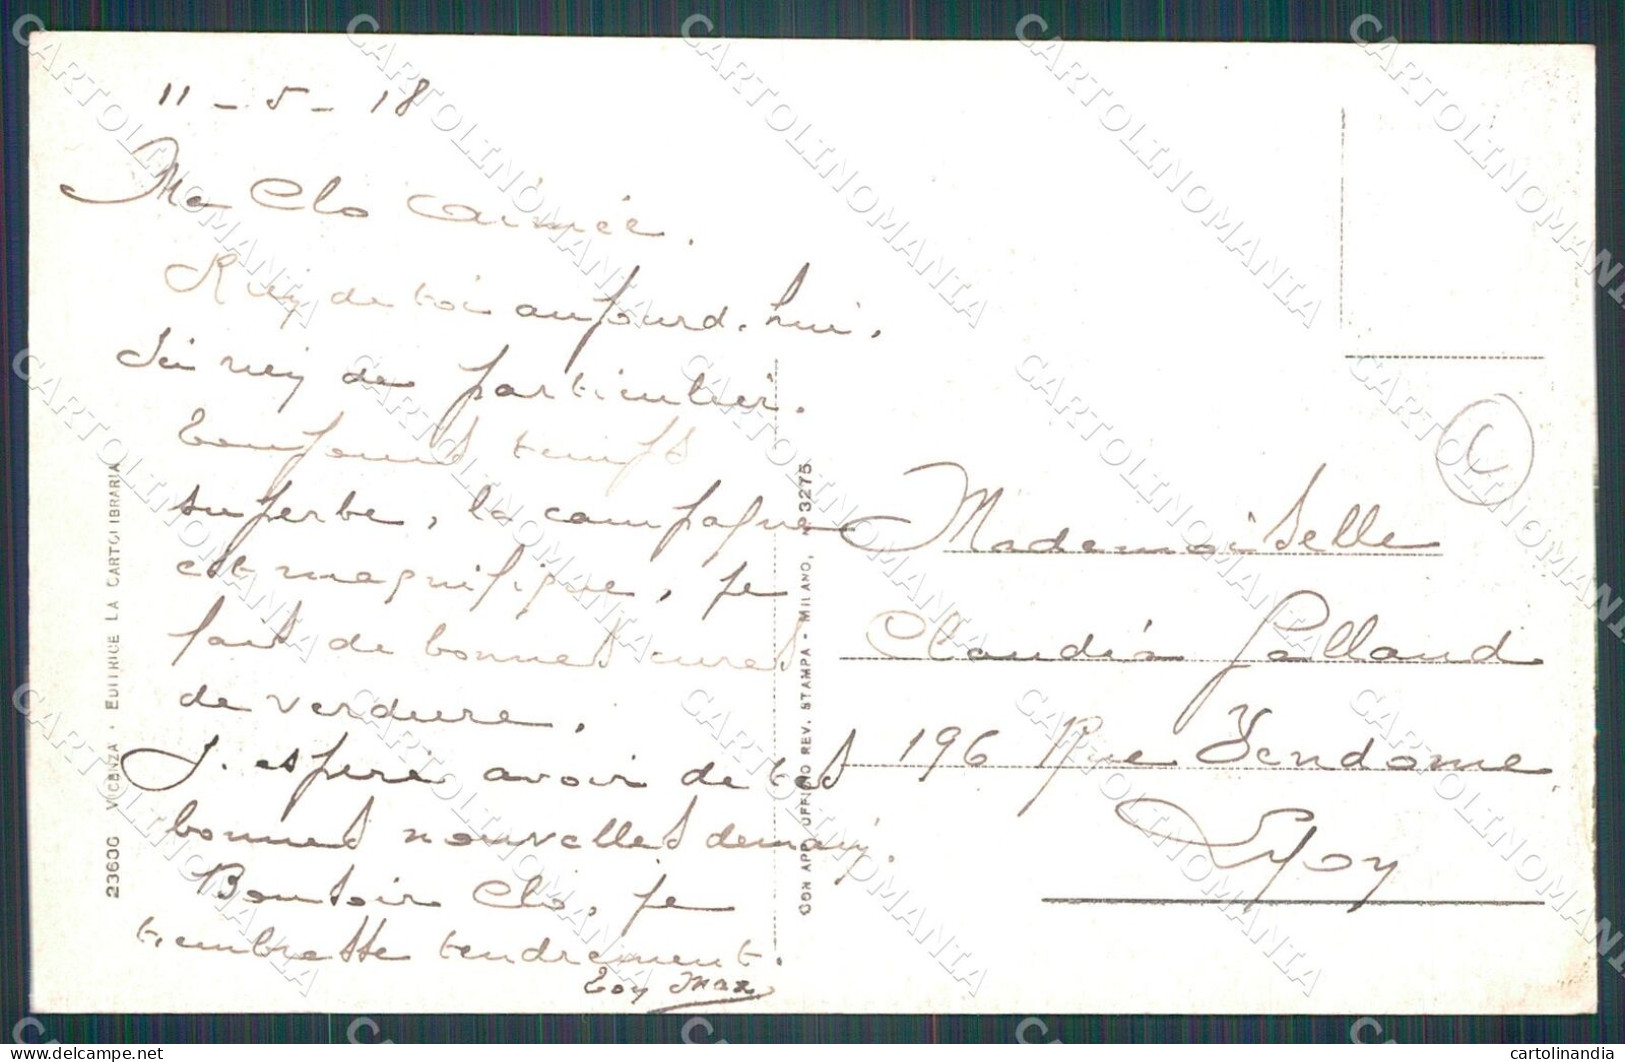 11 - 5 - 18
Ma Clo aimée.
Rien de toi aujourd'hui.
Ici rien de particulier.
Toujours temps
superbe, la campagne
est magnifique, je
fais de bonnes cures
de verdure.
J'espère avoir de tes
bonnes nouvelles demain.
Bonsoir Clo, je
t'embrasse tendrement.
Ton Max
23636 VICENZA - EDITRICE LA CARTOLIBRARIA
CON APP. UFFICIO REV. STAMPA - MILANO, N. 3275
C
Mademoiselle
Claudia Galland
196 Rue Vendome
Lyon
CARTOLINOMANIA
cartolinandia